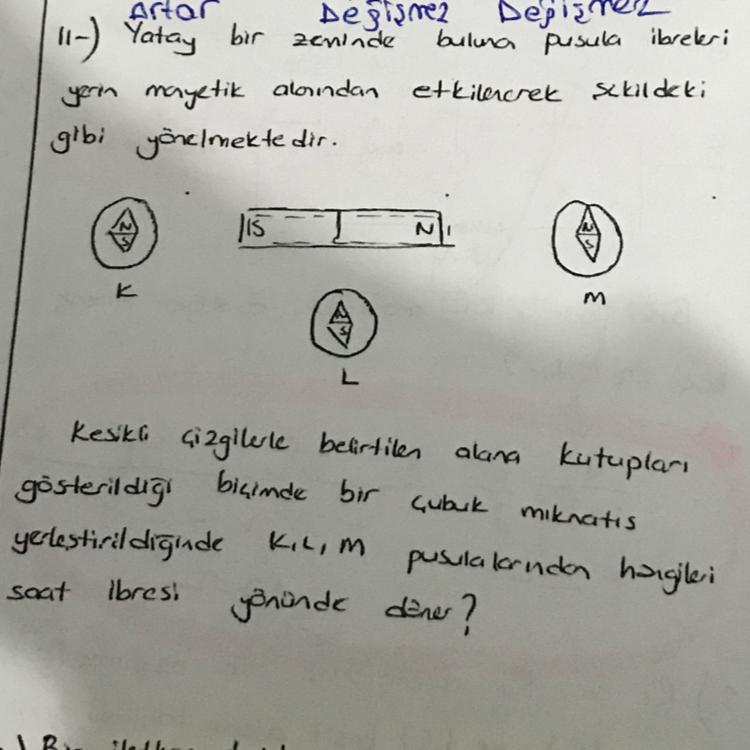 Artar Değişmez Değişmez
11-) Yatay bir zeminde buluna pusula ibreleri
yerin mayetik alanından etkilenerek şekildeki
gibi yönelmektedir.
N S
K
S N
N S
M
N S
L
Kesikli çizgilerle belirtilen alana kutupları
gösterildiği biçimde bir çubuk mıknatıs
yerleştirildiğinde K, L, M pusulalarından hangileri
saat ibresi yönünde döner?